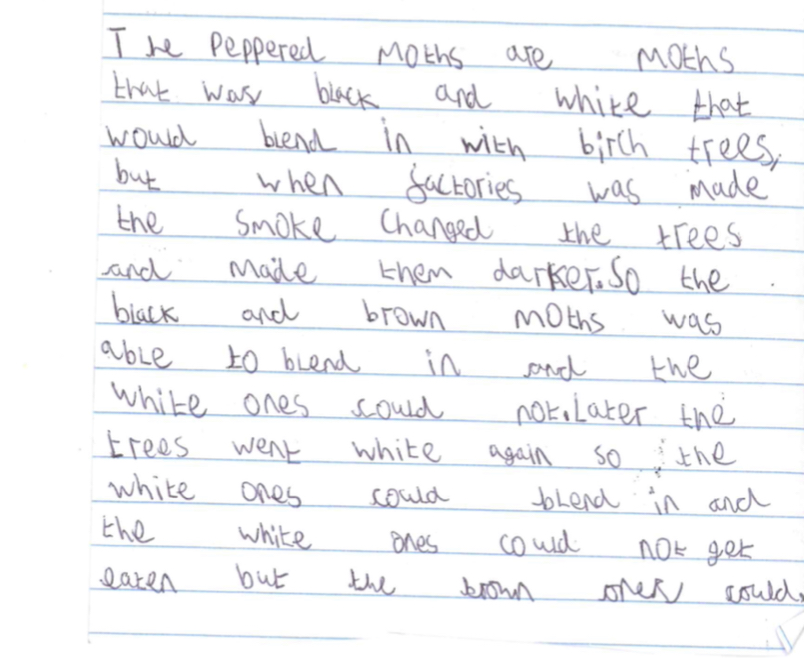 The Peppered Moths are Moths
that was black and white that
would blend in with birch trees,
but when factories was made
the smoke Changed the trees
and made them darker. So the
black and brown moths was
able to blend in and the
white ones could not. Later the
trees went white again so the
white ones could blend in and
the white ones could not get
eaten but the brown ones could.